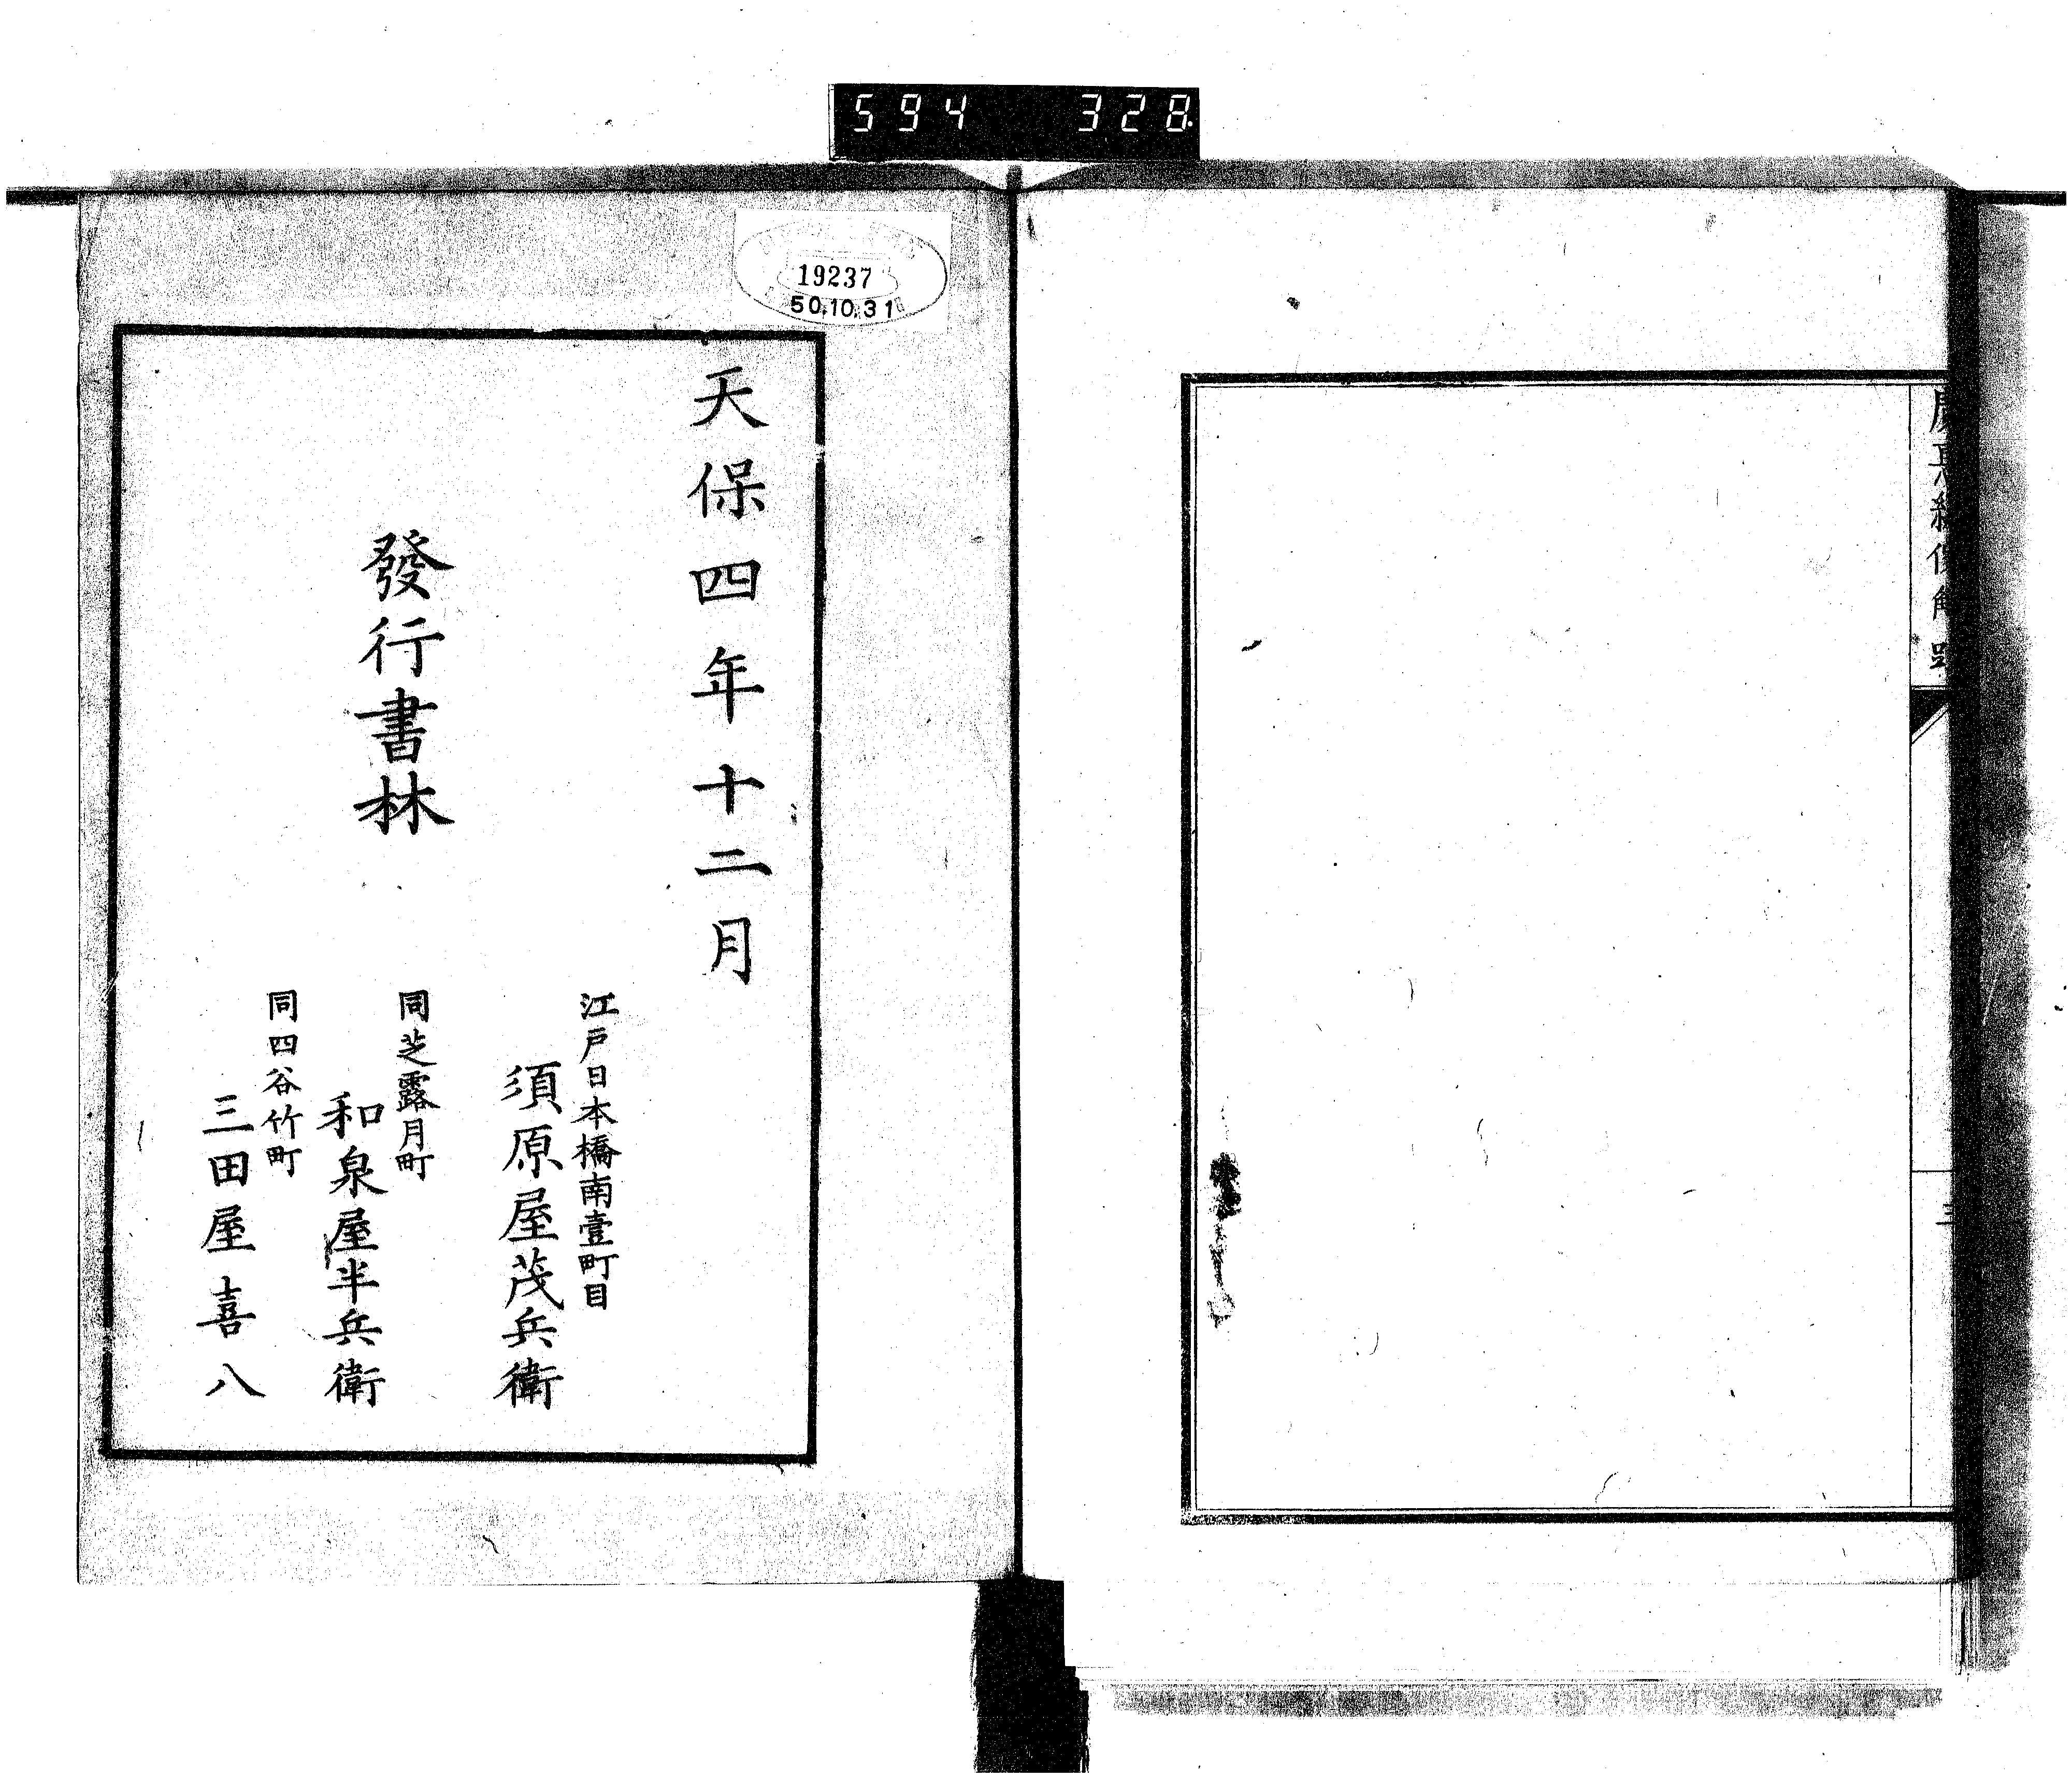 594 328
19237
50.10.31
天保四年十二月
發行書林
江戸日本橋南壹町目
須原屋茂兵衛
同芝露月町
和泉屋半兵衛
同四谷竹町
三田屋喜八